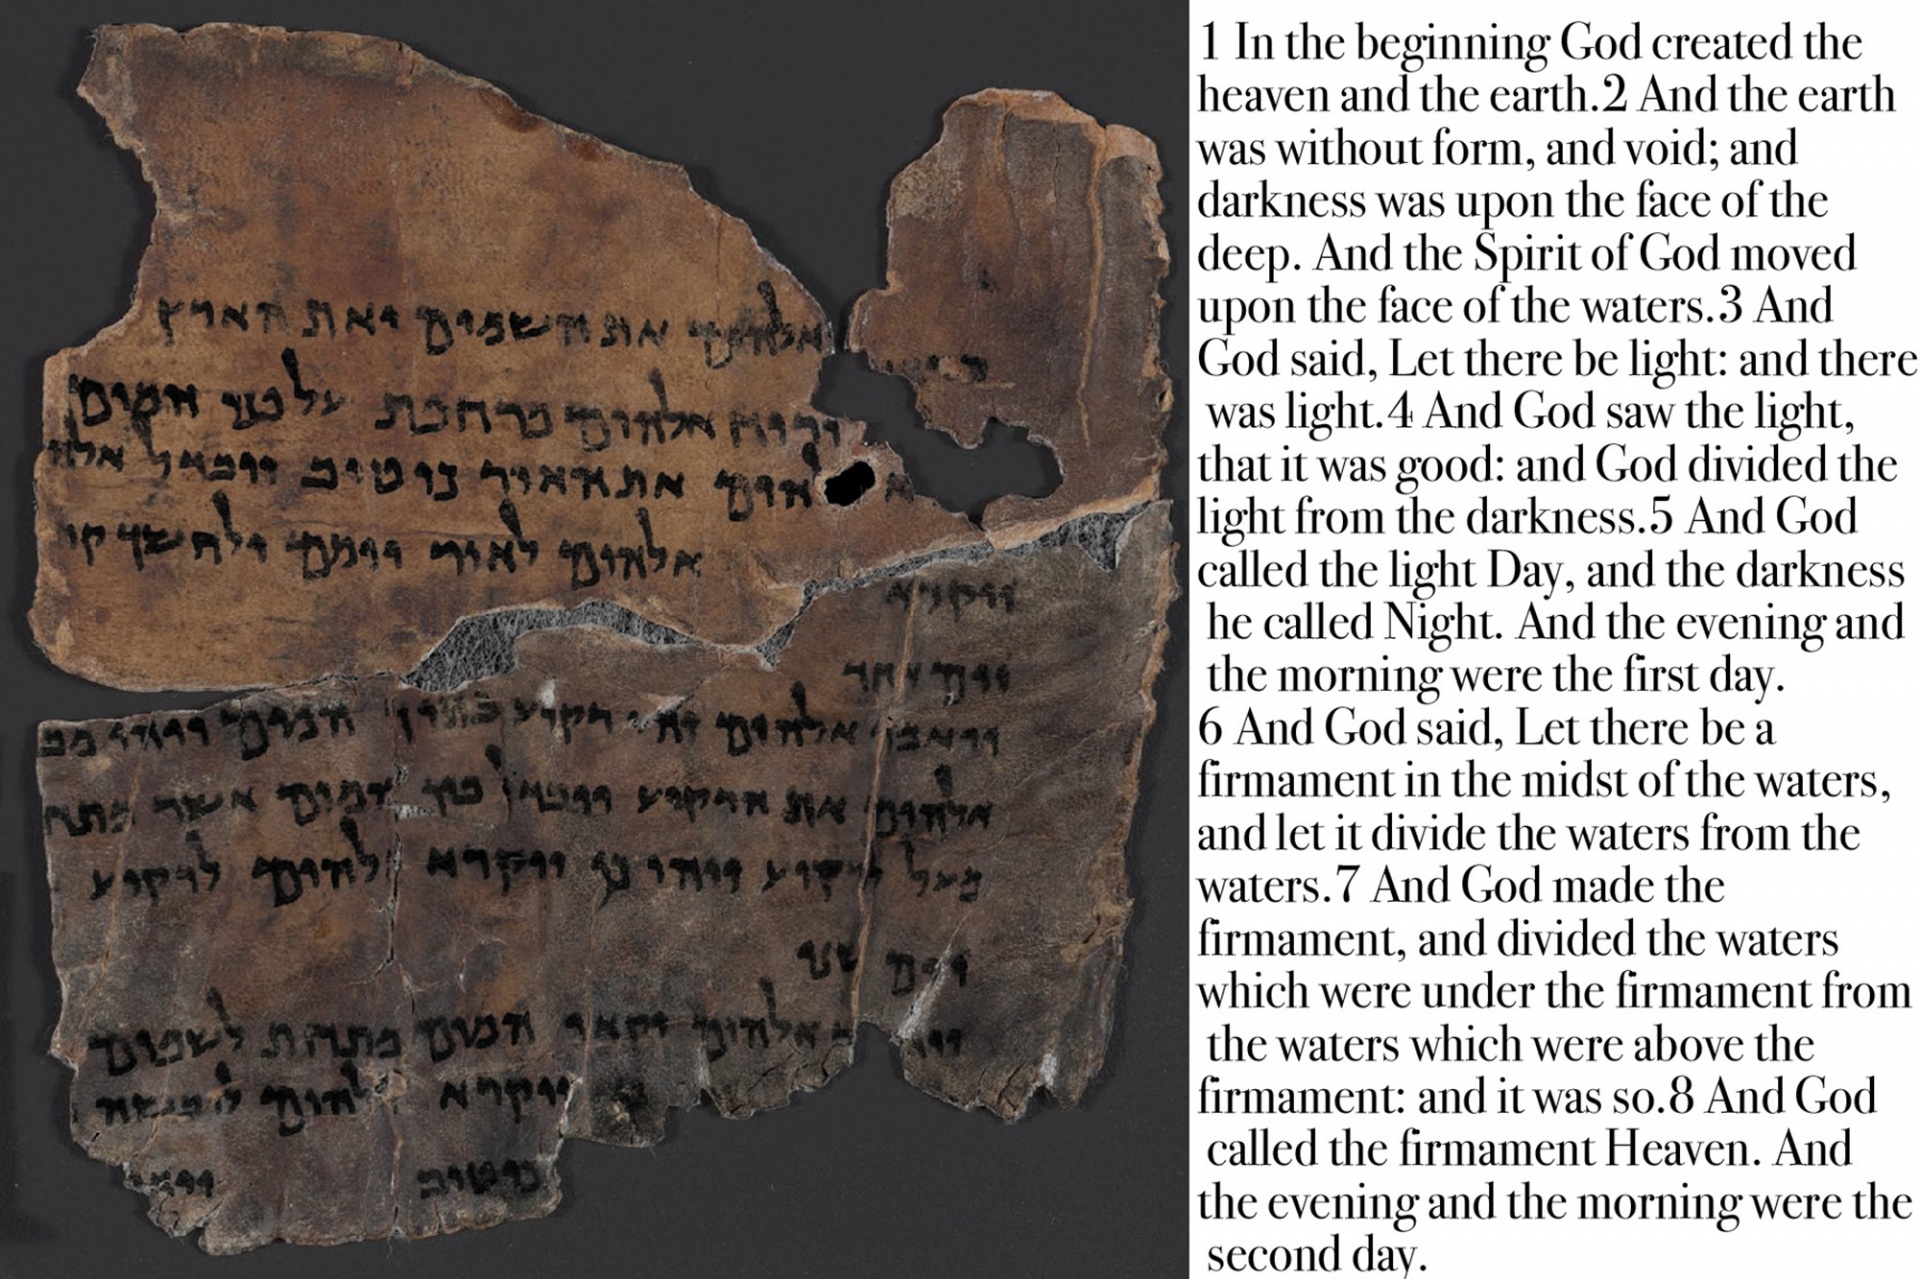 אלהים את השמים ואת הארץ
ורוח אלהים מרחפת על פני המים
אלהים את האור כי טוב ויבדל
אלהים לאור יומם ולחשך קר
ויקרא
יום אחד
ויאמר אלהים יהי רקיע בתוך המים ויהי מב
אלהים את הרקיע ויבדל בין המים אשר מתח
מעל לרקיע ויהי כן ויקרא אלהים לרקיע
יום שני
אלהים המים מתחת לשמים
ויקרא אלהים ליבשה
כי טוב
1 In the beginning God created the
heaven and the earth.2 And the earth
was without form, and void; and
darkness was upon the face of the
deep. And the Spirit of God moved
upon the face of the waters.3 And
God said, Let there be light: and there
was light.4 And God saw the light,
that it was good: and God divided the
light from the darkness.5 And God
called the light Day, and the darkness
he called Night. And the evening and
the morning were the first day.
6 And God said, Let there be a
firmament in the midst of the waters,
and let it divide the waters from the
waters.7 And God made the
firmament, and divided the waters
which were under the firmament from
the waters which were above the
firmament: and it was so.8 And God
called the firmament Heaven. And
the evening and the morning were the
second day.